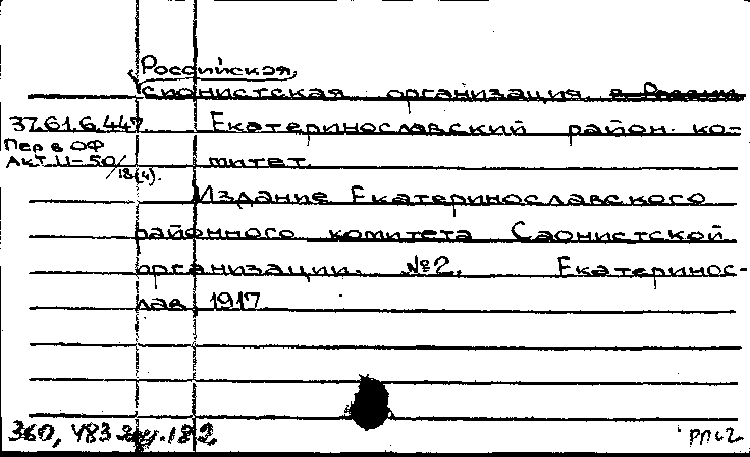 Российская
сионистская организация в России
37.61.6.447. Екатеринославский район. ко-
Пер в ОФ
Акт II-50/18(4). митет.
Издание Екатеринославского
районного комитета Саонистской
организации. №2. Екатеринос-
лав, 1917
360, 483 182.